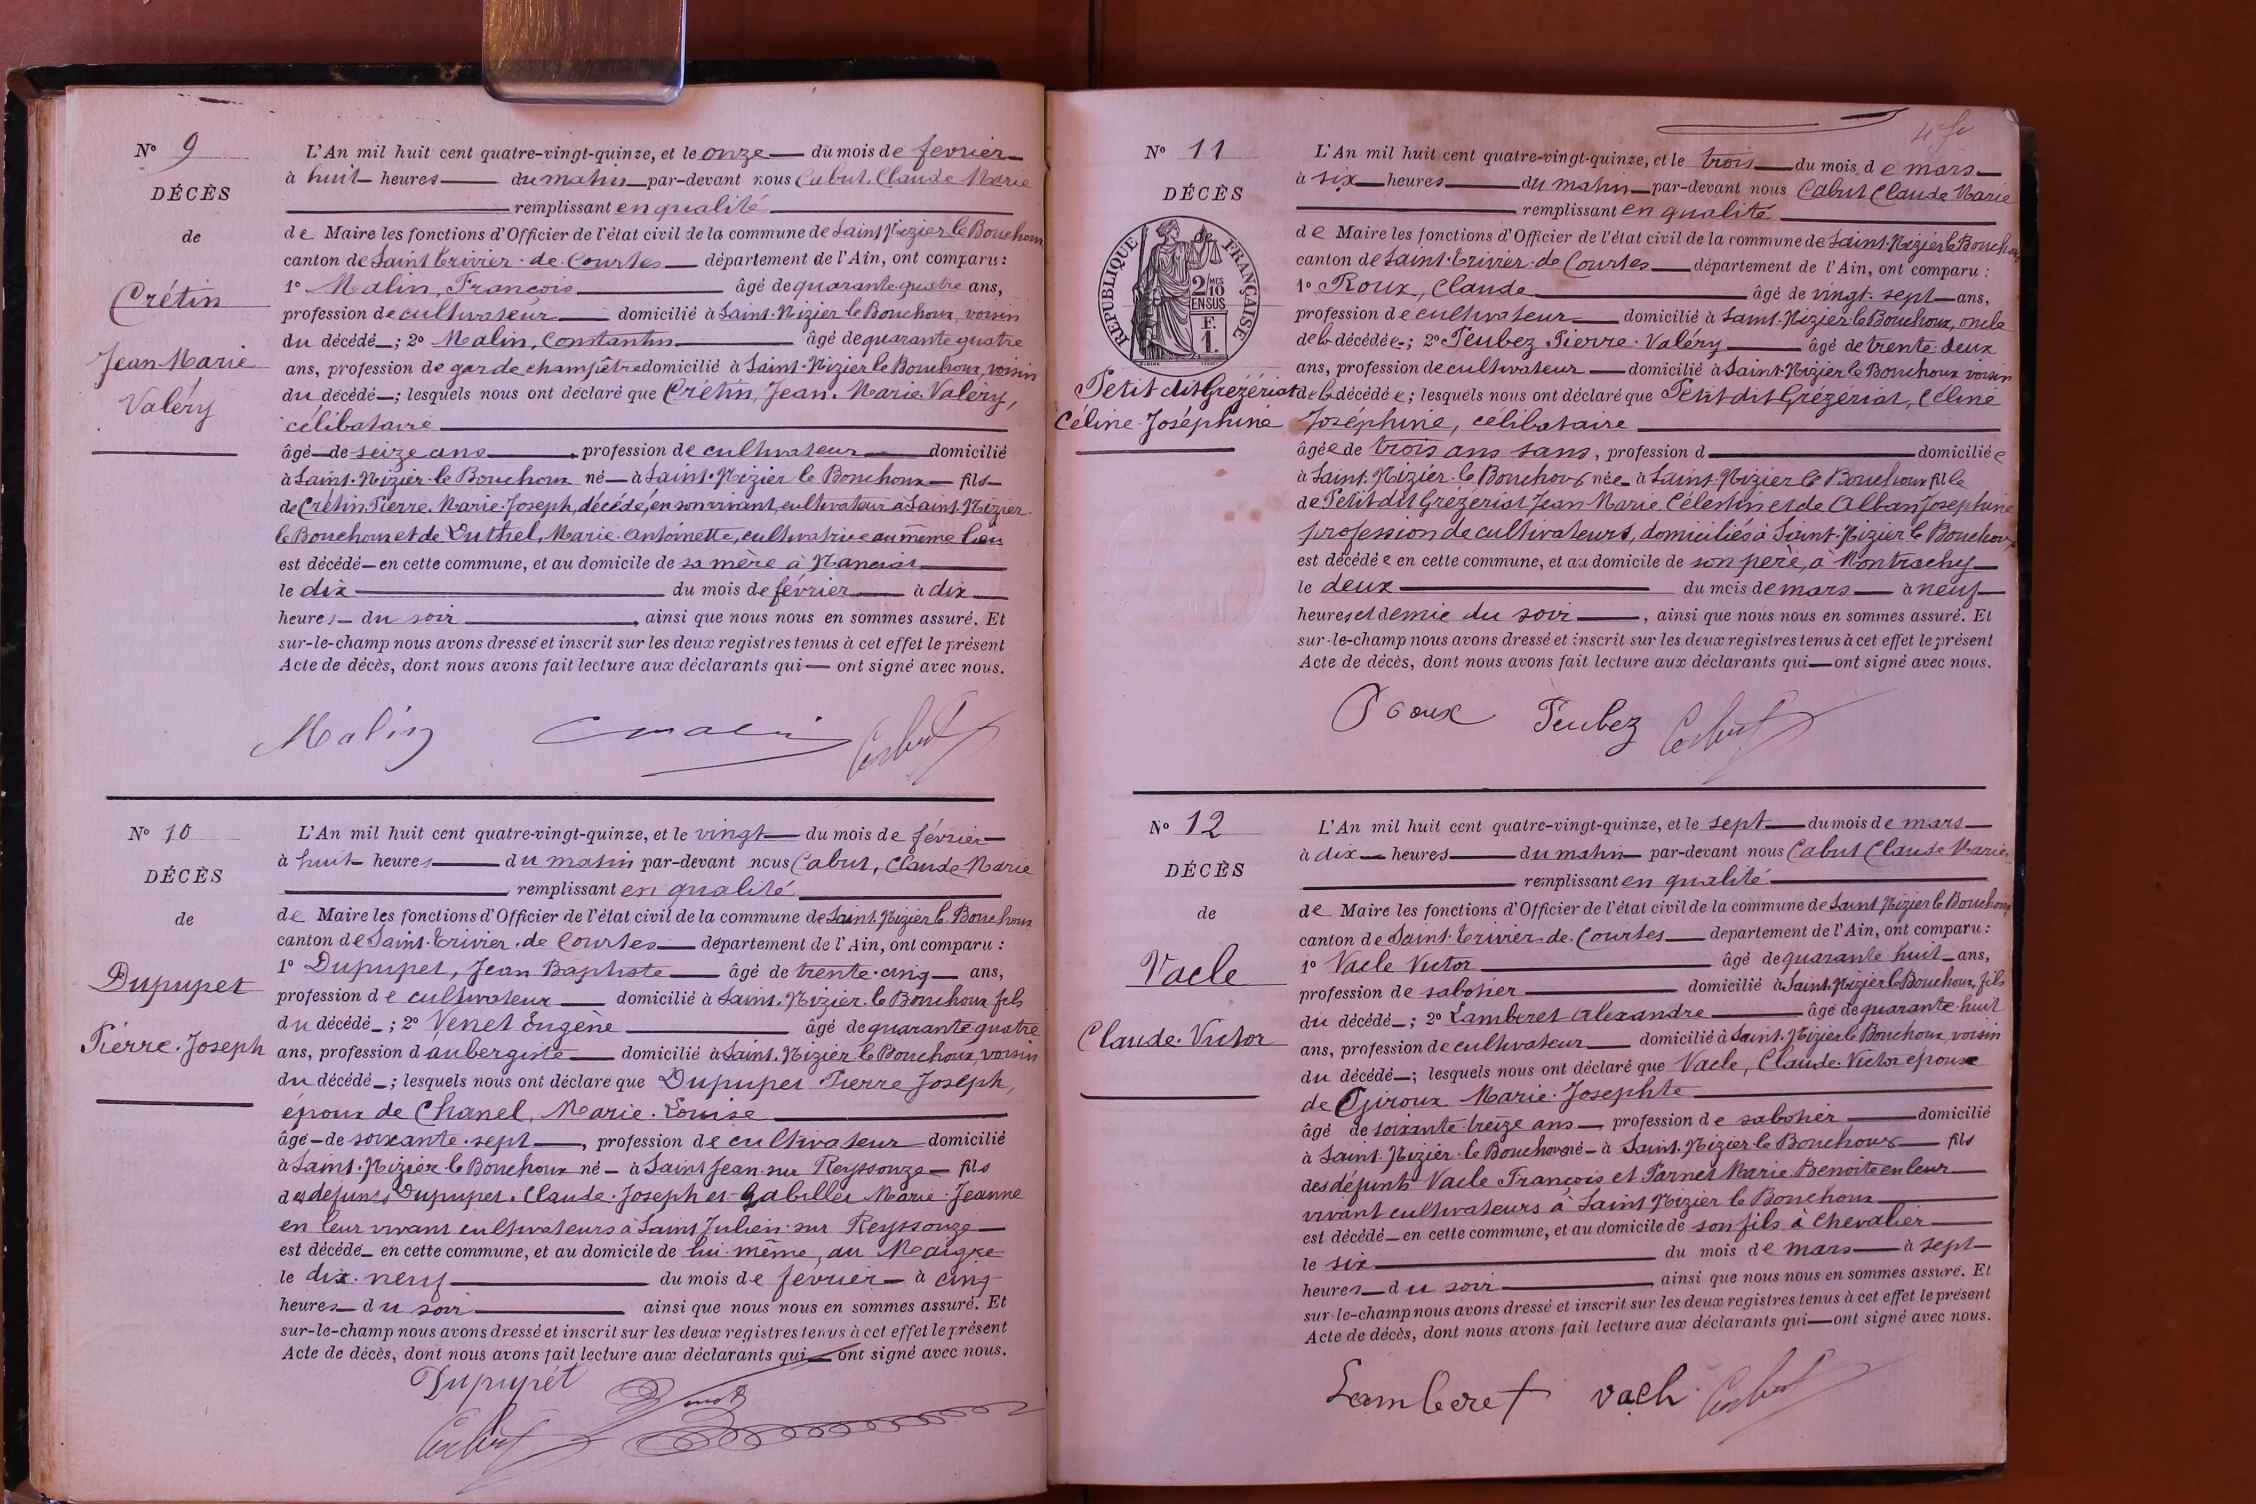 N° 9
DÉCÈS
de
Crétin
Jean Marie
Valéry
L'An mil huit cent quatre-vingt-quinze, et le onze du mois de fevrier
à huit heures du matin par-devant nous Cabut Claude Marie
remplissant en qualité
de Maire les fonctions d'Officier de l'état civil de la commune de Saint Nizier le Bouchoux
canton de Saint Trivier de Courtes département de l'Ain, ont comparu :
1° Malin, François âgé de quarante quatre ans,
profession de cultivateur domicilié à Saint-Nizier le Bouchoux, voisin
du décédé ; 2° Malin, Constantin âgé de quarante quatre
ans, profession de garde champêtre domicilié à Saint-Nizier le Bouchoux, voisin
du décédé ; lesquels nous ont déclaré que Crétin, Jean Marie Valéry,
célibataire
âgé de seize ans profession de cultivateur domicilié
à Saint-Nizier le Bouchoux né à Saint-Nizier le Bouchoux fils
de Crétin Pierre Marie Joseph, décédé, en son vivant, cultivateur à Saint-Nizier
le Bouchoux et de Luthel, Marie Antoinette, cultivatrice au même lieu
est décédé en cette commune, et au domicile de sa mère à Nanciat
le dix du mois de février à dix
heures du soir, ainsi que nous nous en sommes assuré. Et
sur-le-champ nous avons dressé et inscrit sur les deux registres tenus à cet effet le présent
Acte de décès, dont nous avons fait lecture aux déclarants qui ont signé avec nous.
Malin Cmalin Cabut
N° 10
DÉCÈS
de
Dupupet
Pierre Joseph
L'An mil huit cent quatre-vingt-quinze, et le vingt du mois de février
à huit heures du matin par-devant nous Cabut, Claude Marie
remplissant en qualité
de Maire les fonctions d'Officier de l'état civil de la commune de Saint-Nizier le Bouchoux
canton de Saint-Trivier de Courtes département de l'Ain, ont comparu :
1° Dupupet, Jean Baptiste âgé de trente-cinq ans,
profession de cultivateur domicilié à Saint-Nizier le Bouchoux, fils
du décédé ; 2° Venet Eugène âgé de quarante quatre
ans, profession d'aubergiste domicilié à Saint-Nizier le Bouchoux, voisin
du décédé ; lesquels nous ont déclaré que Dupupet Pierre Joseph,
époux de Chanel, Marie Louise
âgé de soixante-sept, profession de cultivateur domicilié
à Saint-Nizier le Bouchoux né à Saint Jean sur Reyssouze fils
des défunts Dupupet Claude Joseph et Gabillet Marie Jeanne
en leur vivant cultivateurs à Saint Julien sur Reyssouze
est décédé en cette commune, et au domicile de lui même, au Maigre
le dix neuf du mois de février à cinq
heures du soir ainsi que nous nous en sommes assuré. Et
sur-le-champ nous avons dressé et inscrit sur les deux registres tenus à cet effet le présent
Acte de décès, dont nous avons fait lecture aux déclarants qui ont signé avec nous.
Dupupét Venet
Cabut
N° 11
DÉCÈS
de
RÉPUBLIQUE FRANÇAISE
2/10 MES
EN SUS
F.
1.
Petit dit Grézériat
Céline Joséphine
L'An mil huit cent quatre-vingt-quinze, et le trois du mois de mars
à six heures du matin par-devant nous Cabut Claude Marie
remplissant en qualité
de Maire les fonctions d'Officier de l'état civil de la commune de Saint-Nizier le Bouchoux
canton de Saint-Trivier de Courtes département de l'Ain, ont comparu :
1° Roux, Claude âgé de vingt-sept ans,
profession de cultivateur domicilié à Saint-Nizier-le Bouchoux, oncle
de la décédée ; 2° Teubez Pierre Valéry âgé de trente deux
ans, profession de cultivateur domicilié à Saint-Nizier le Bouchoux voisin
de la décédée ; lesquels nous ont déclaré que Petit dit Grézériat, Céline
Joséphine, célibataire
âgée de trois ans sans, profession d domiciliée
à Saint-Nizier le Bouchoux née à Saint-Nizier le Bouchoux fille
de Petit dit Grézériat Jean Marie Célestin et de Alban Josephine
profession de cultivateurs, domiciliés à Saint-Nizier le Bouchoux
est décédée en cette commune, et au domicile de son père, à Montrachy
le deux du mois de mars à neuf
heures et demie du soir, ainsi que nous nous en sommes assuré. Et
sur-le-champ nous avons dressé et inscrit sur les deux registres tenus à cet effet le présent
Acte de décès, dont nous avons fait lecture aux déclarants qui ont signé avec nous.
Roux Teubez Cabut
N° 12
DÉCÈS
de
Vacle
Claude Victor
L'An mil huit cent quatre-vingt-quinze, et le sept du mois de mars
à dix heures du matin par-devant nous Cabut Claude Marie
remplissant en qualité
de Maire les fonctions d'Officier de l'état civil de la commune de Saint Nizier le Bouchoux
canton de Saint-Trivier de Courtes département de l'Ain, ont comparu :
1° Vacle Victor âgé de quarante huit ans,
profession de sabotier domicilié à Saint-Nizier le Bouchoux, fils
du décédé ; 2° Lamberet Alexandre âgé de quarante-huit
ans, profession de cultivateur domicilié à Saint-Nizier le Bouchoux voisin
du décédé ; lesquels nous ont déclaré que Vacle, Claude Victor époux
de Giroux Marie Josephte
âgé de soixante-treize ans profession de sabotier domicilié
à Saint-Nizier le Bouchoux né à Saint-Nizier le Bouchoux fils
des défunts Vacle François et Parnet Marie Benoite en leur
vivant cultivateurs à Saint Nizier le Bouchoux
est décédé en cette commune, et au domicile de son fils à Chevalier
le six du mois de mars à sept
heures du soir, ainsi que nous nous en sommes assuré. Et
sur-le-champ nous avons dressé et inscrit sur les deux registres tenus à cet effet le présent
Acte de décès, dont nous avons fait lecture aux déclarants qui ont signé avec nous.
Lamberet Vacle Cabut